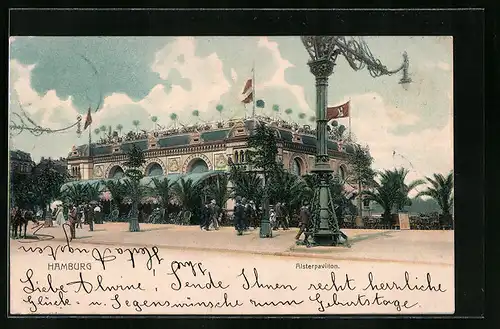 HAMBURG
Alsterpavillon.
Liebe Alwine! Sende Ihnen recht herzliche
Glück- u. Segenswünsche zum Geburtstage.